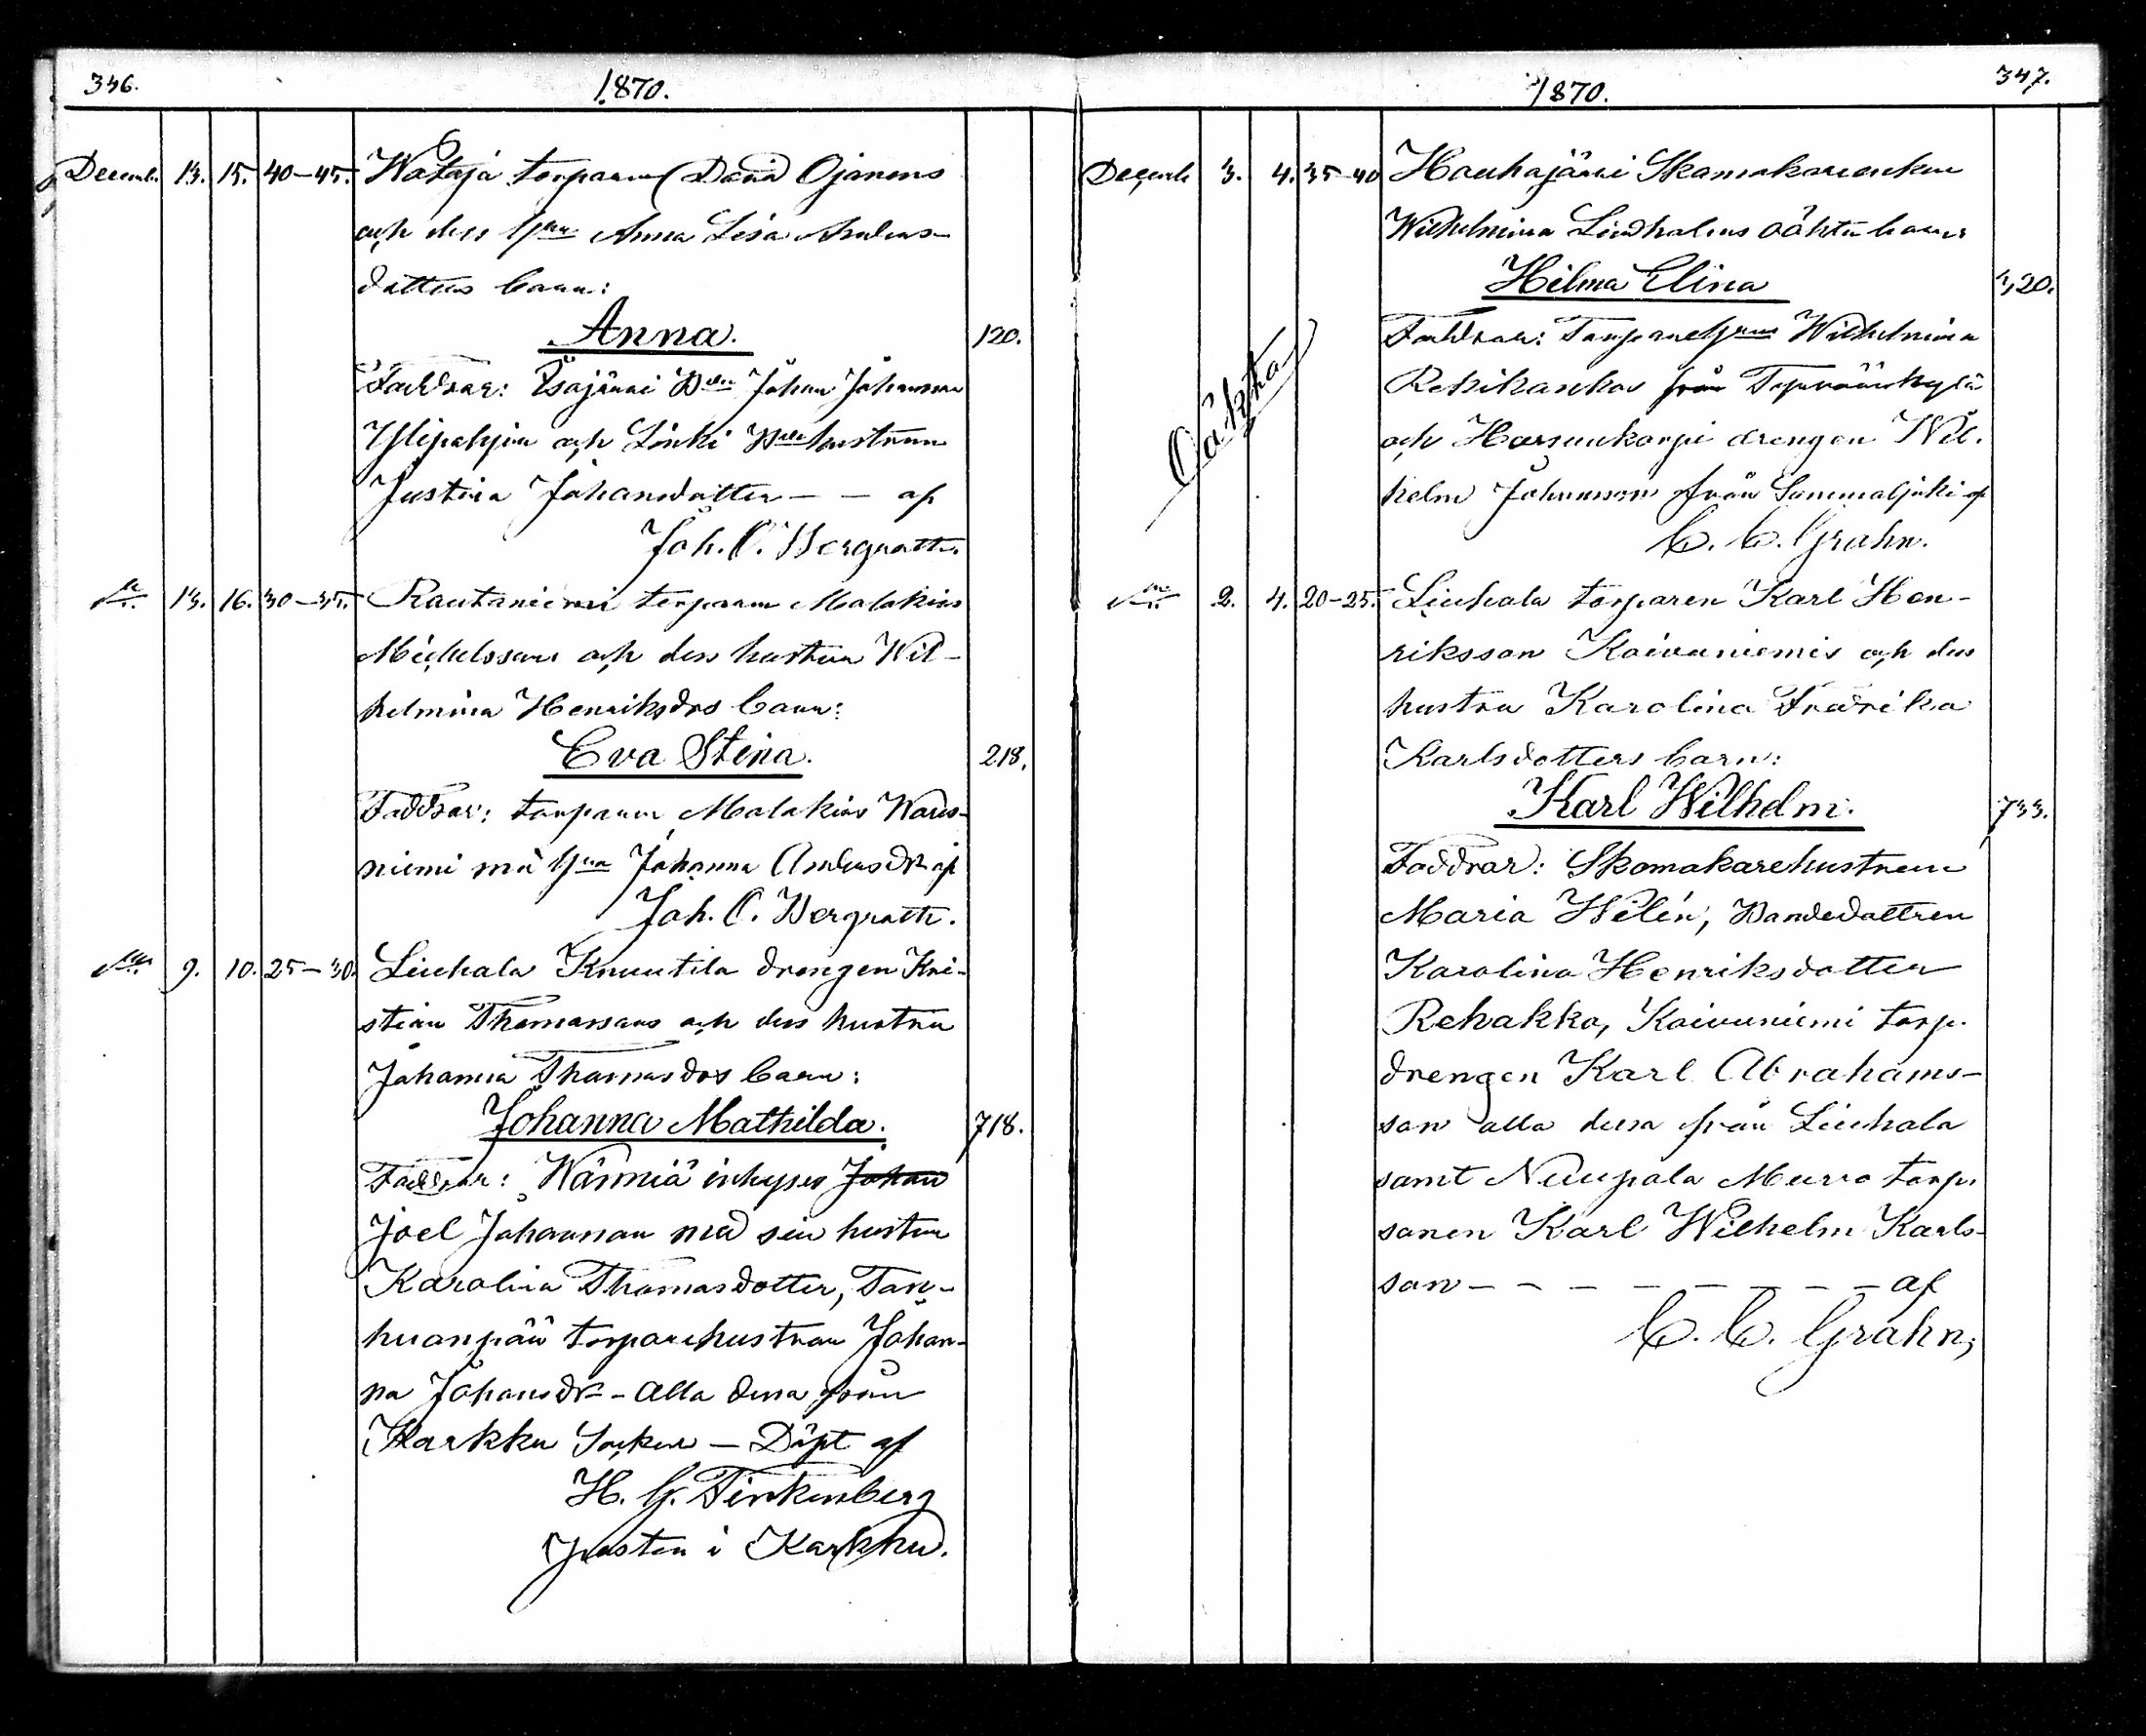 346.
1870.
Decemb. 13. 15. 40-45. Wataja torparen David Ojanens
och dess hu Anna Lisa Anders-
dotters barn:
Anna. 120.
Faddrar: Isajärvi Bden Johan Johansson
Ylipohja och Linki Bde hustrun
Justina Johansdotter - - af
Joh. O. Bergroth.
13. 16. 30-35. Rautaniemi torparen Malakias
Michelssons och dess hustru Wil-
helmina Henriksdrs barn:
Eva Stina. 218.
Faddrar: torparen Malakias Waris-
niemi md hu Johanna Andersdr af
Joh. O. Bergroth.
9. 10. 25-30. Liuhala Knuutila drengen Kri-
stian Thomassons och dess hustru
Johanna Thomasdrs barn:
Johanna Mathilda. 718.
Faddrar: Wänniä inhyses Johan
Joel Johansson med sin hustru
Karolina Thomasdotter, Tan-
huanpää torparehustrun Johan-
na Johansdr - Alla dessa från
Karkku Socken - Döpt af
H. G. Tinkenberg
Prosten i Karkku.
347.
1870.
Decemb 3. 4. 35-40 Houhajärvi Skomakareenkan
Wilhelmina Lindholms oäkta barn:
Hilma Elina 3,20.
Oäkta
Faddrar: Torparehu Wilhelmina
Rekikoski från
och Harsunkorpi drengen Wil-
helm Johansson från Sammaljoki af
C. C. Grahn.
2. 4. 20-25. Liuhala torparen Karl Hen-
riksson Koivuniemis och dess
hustru Karolina Fredrika
Karlsdotters barn:
Karl Wilhelm. 733.
Faddrar: Skomakarehustrun
Maria Helén, Bondedottren
Karolina Henriksdotter
Rehakka, Koivuniemi torp.
drengen Karl Abrahams-
son alla dessa från Liuhala
samt Nuupala Murro torp.
sonen Karl Wilhelm Karls-
son - - - - - - - - - af
C. C. Grahn;